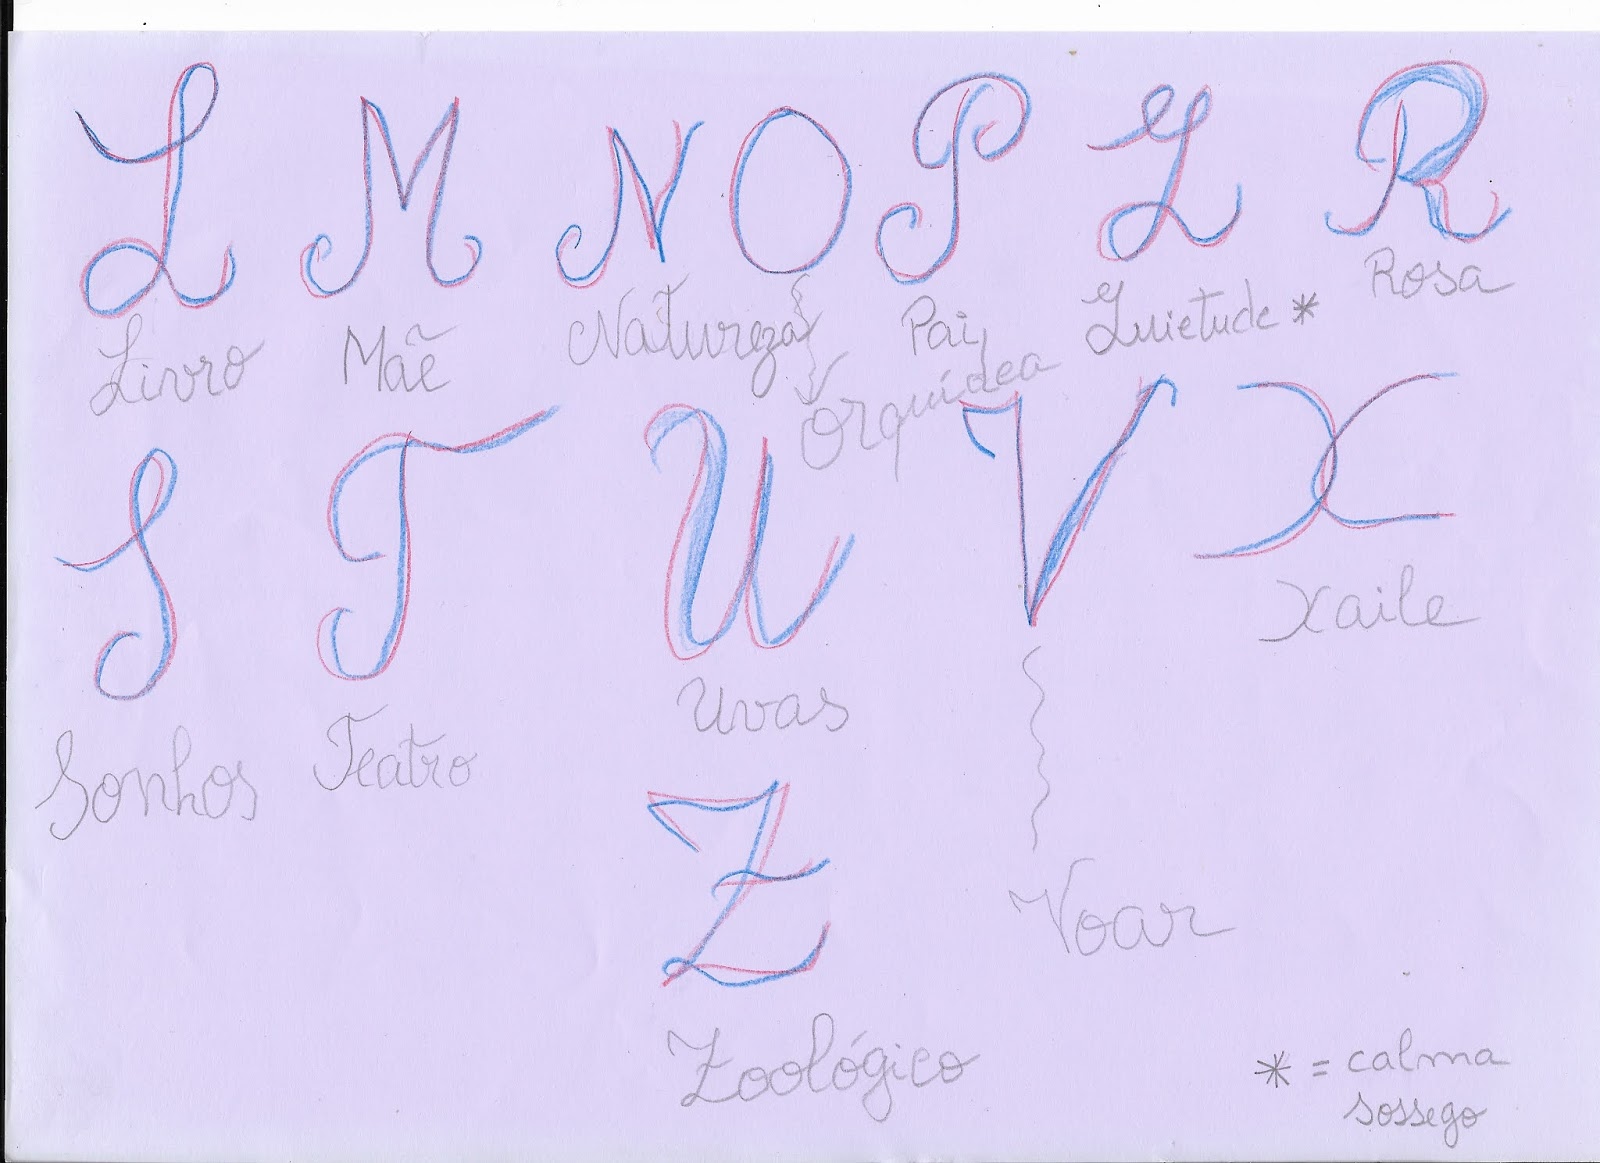 L M N O P Q R
Livro Mãe Natureza Pai Quietude * Rosa
Orquídea
S T U V X
Xaile
Sonhos Teatro Uvas
Z
Voar
Zoológico
* = calma
sossego